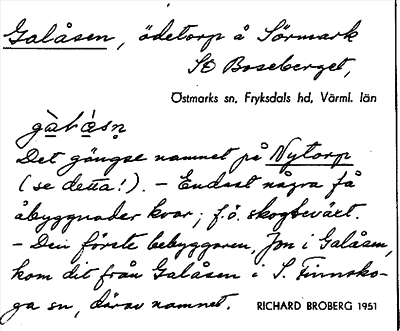 Galåsen, ödetorp å Sörmark
SO Boseberget,
Östmarks sn, Fryksdals hd, Värml. län
gàlǻsn̥
Det gängse namnet på Nytorp
(se detta!). – Endast några få
åbyggnader kvar; f.ö. skogbeväxt.
– Den förste bebyggaren, Jon i Galåsen,
kom dit från Galåsen i S. Finnsko-
ga sn, därav namnet. RICHARD BROBERG 1951